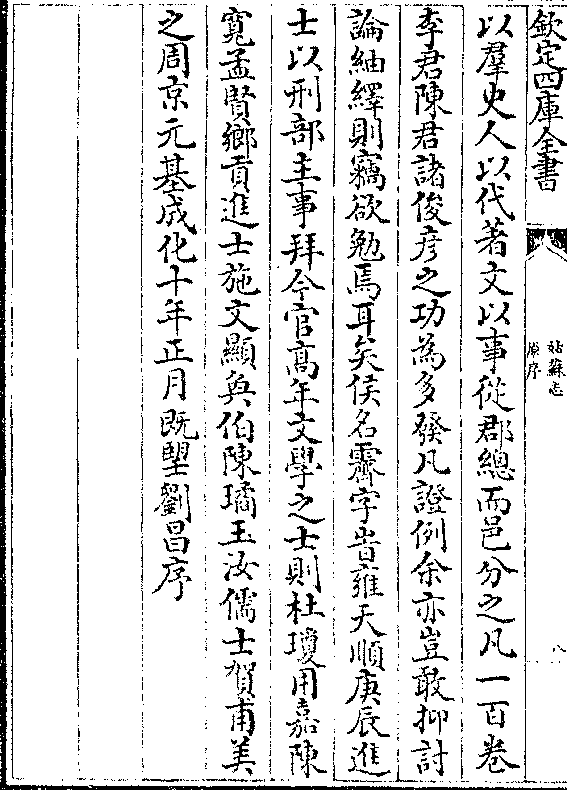 欽定四庫全書
姑蘇志
原序
八
以羣史人以代著文以事從郡總而邑分之凡一百卷
李君陳君諸俊彦之功為多發凡證例余亦豈敢抑討
論紬繹則竊欲勉焉耳矣侯名霽字時雍天順庚辰進
士以刑部主事拜今官髙年文學之士則杜瓊用嘉陳
寛孟賢鄉貢進士施文顯奐伯陳璚玉汝儒士賀甫美
之周京元基成化十年正月既朢劉昌序